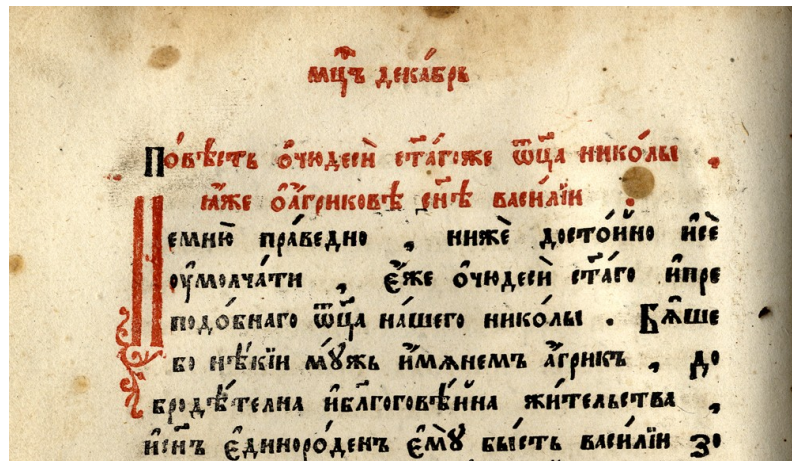 мцⷭ҇ъ дека́брь
По́вѣсть ѡ҆чюдесѝ ст҃а́гоже ѿц҃а нико́лы ,
ꙗ҆́же ѡ҆а҆́гриковѣ сн҃ѣ васи́лїи .
Не мню̀ пра́ведно , нижѐ досто́йно и҆сѐ
ᲂу҆молча́ти , є҆́же ѡ҆чюдесѝ ст҃а́го и҆пре
подо́бнаго ѿц҃а на́шего нико́лы . Бѧ́ше
бо нѣ́кїи мꙋ́жь и҆́мѧнемъ а҆́грикъ , до
бродѣ́телна и҆бл҃гоговѣ́йна жи́тельства ,
и҆сн҃ъ є҆диноро́денъ є҆мꙋ̀ бы́сть васи́лїи зо